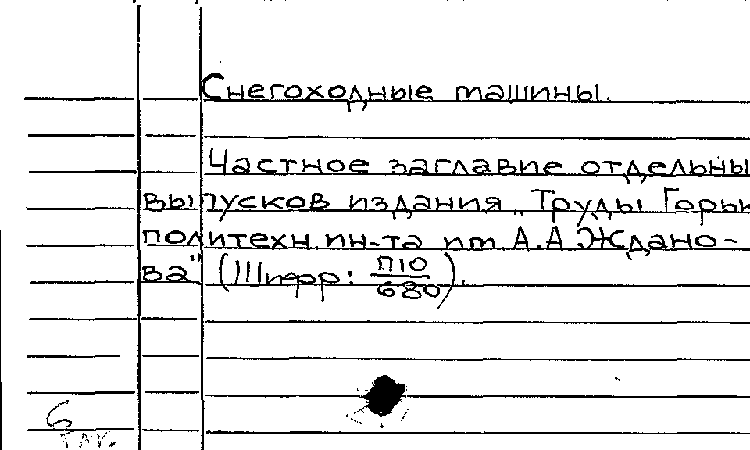 Снегоходные машины.
Частное заглавие отдельны
выпусков издания „Труды Горьк
политехн. ин-та им. А.А. Ждано-
ва" (Шифр: П10/680).
6